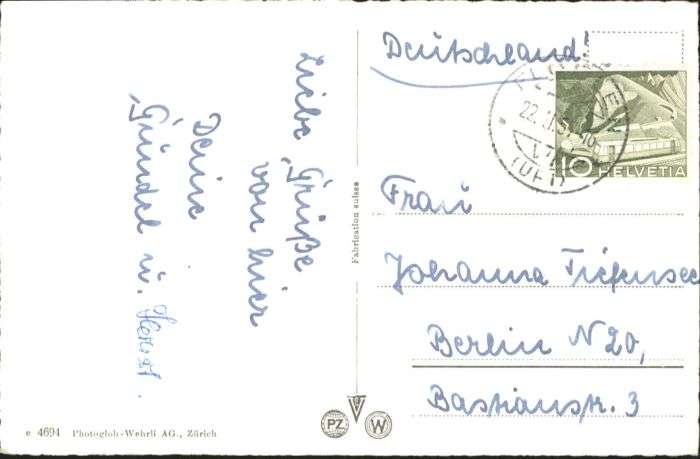 Liebe Grüße
von hier
Deine
Gündel u. Horst.
e 4694 Photoglob-Wehrli AG., Zürich
Fabrication suisse
PZ
W
Deutschland!
22.
(URI)
10 HELVETIA
Frau
Johanna Tiefensee
Berlin N 20,
Bastianstr. 3